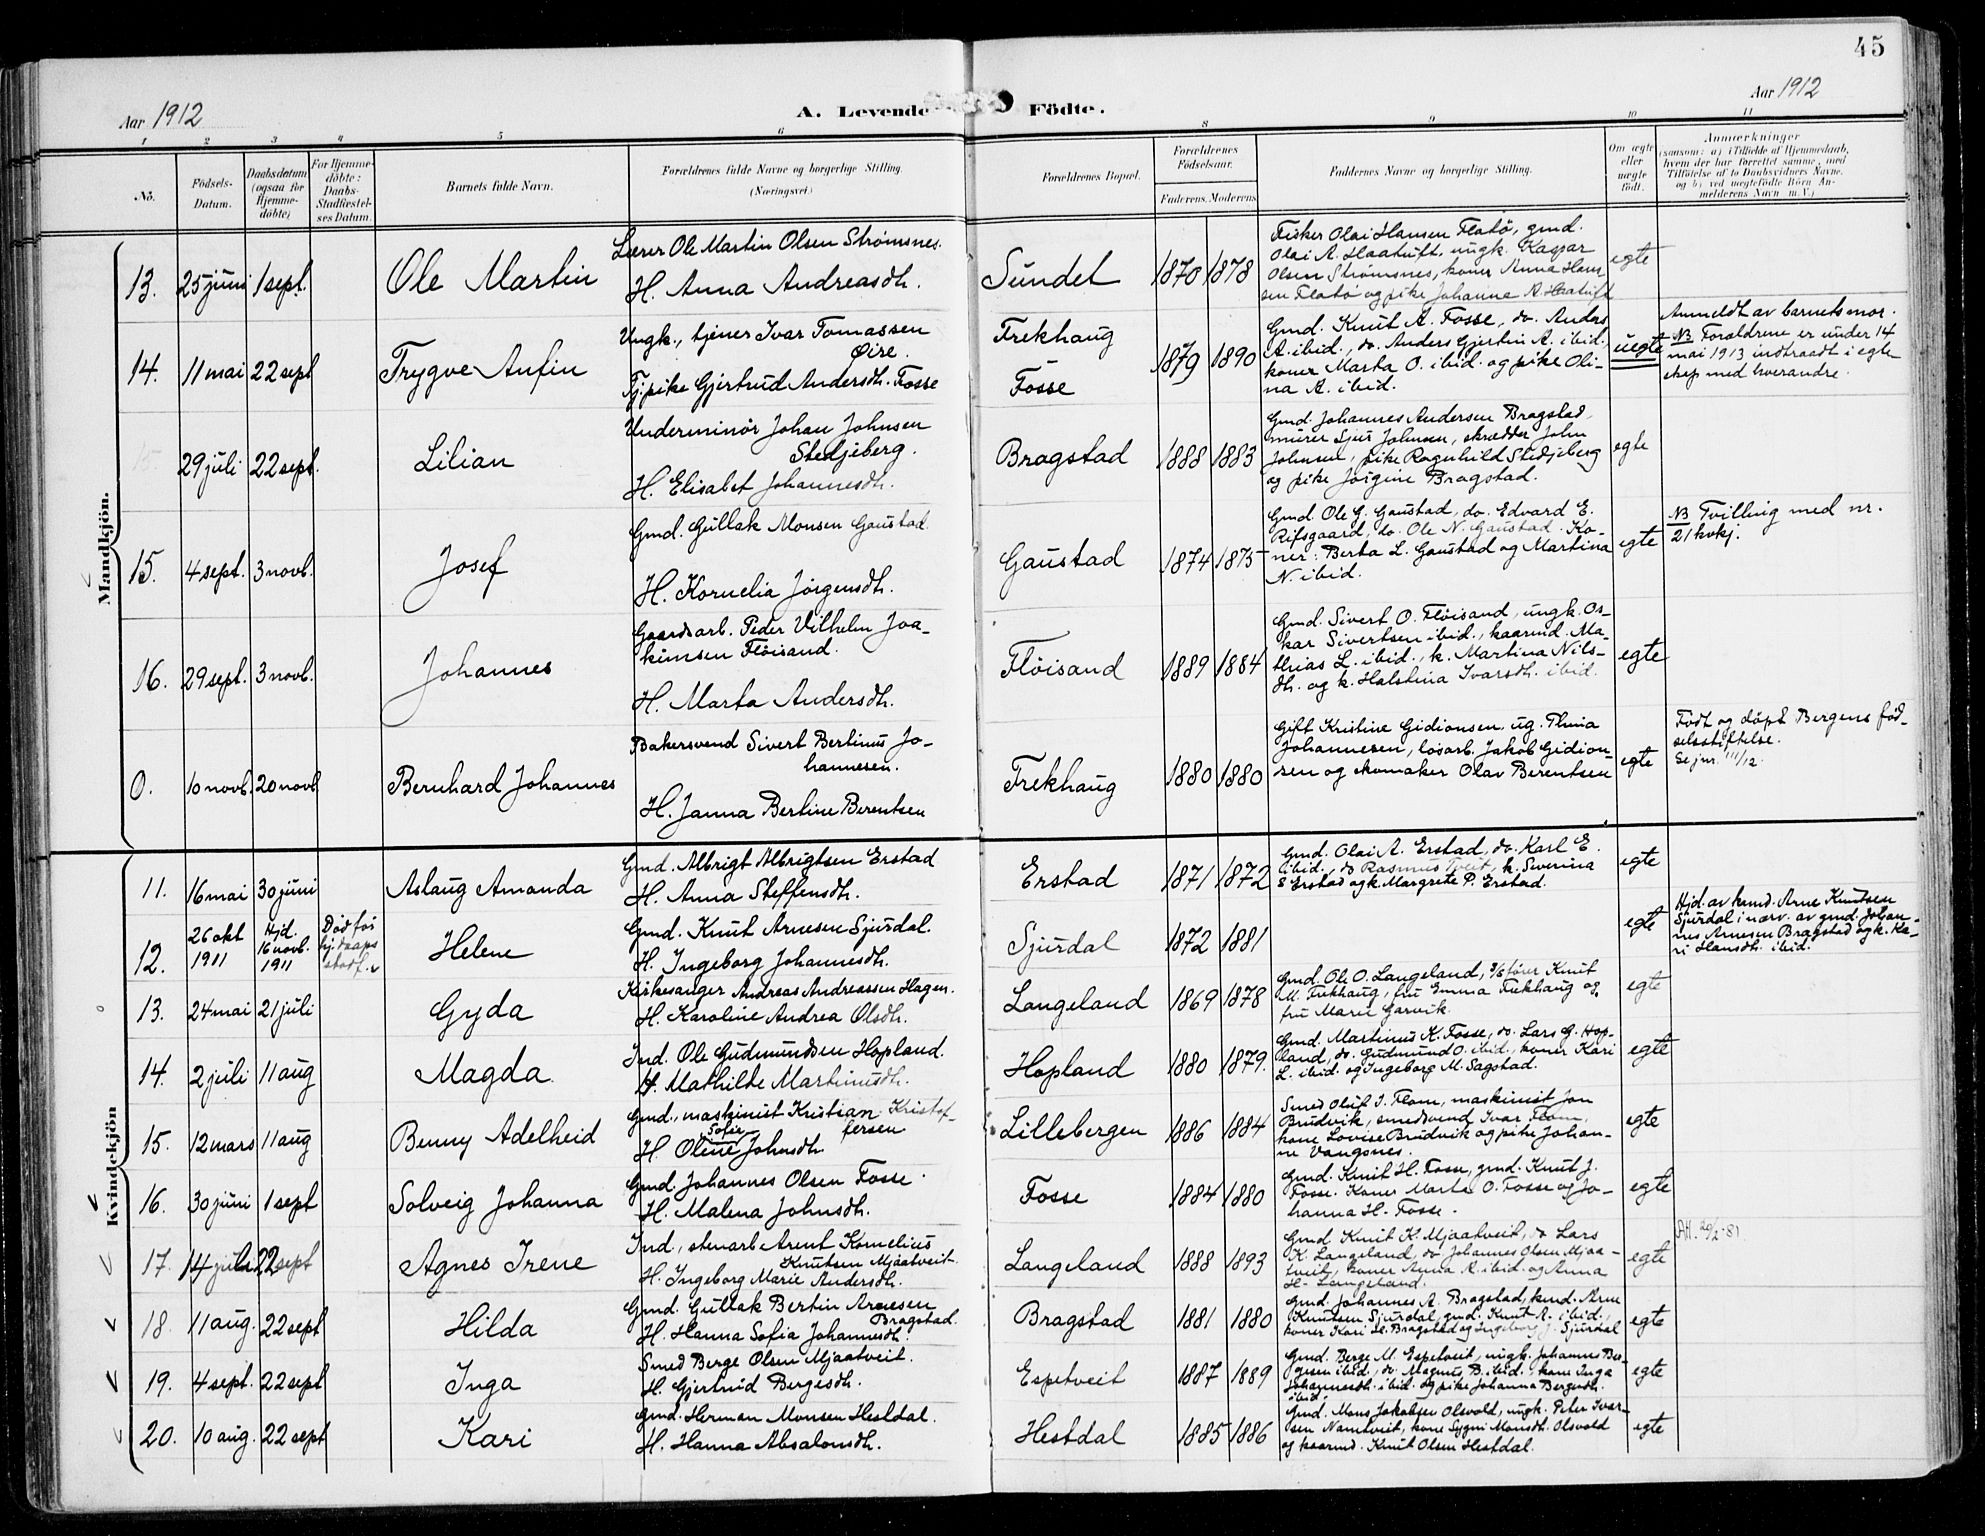 45
Aar 1912
A. Levende Födte.
Aar 1912
1 2 3 4 5 6 8 9 10 11
No.
Födsels-Datum.
Daabsdatum (ogsaa for Hjemme-döbte)
For Hjemme-döbte: Daabs-Stadfæstel-ses Datum.
Barnets fulde Navn.
Forældrenes fulde Navne og borgerlige Stilling (Næringsvei.)
Forældrenes Bopæl.
Forældrenes Födselsaar.
Faderens. Moderens
Faddernes Navne og borgerlige Stilling.
Om ægte eller uægte födt.
Anmærkninger
(saasom: a) i Tilfælde af Hjemmedaab,
hvem der har forrettet samme, med
Tilföielse af to Daabsvidners Navne.
og b) ved uægtefödte Börn An-
melderens Navn m. V.)
Mandkjön.
13. 25 juni 1 sept. Ole Martin
Lærer Ole Martin Olsen Strømsnes.
H. Anna Andreasdh.
Sundet 1870 1878
Fisker Olai Hansen Flatø, gmd.
Olai A. Haatuft, ungk. Kaspar
Olsen Strømsnes, koner Anna Han
sen Flatø og pike Johanne A. Haatuft
egte
14. 11 mai 22 sept Trygve Anfin
Ungk., tjener Ivar Tomassen
Øire.
Tj.pike Gjertrud Andersdh. Fosse
Frekhaug
Fosse
1879 1890
Gmd. Knut A. Fosse, do. Anders
A. ibid., do. Anders Gjertin A. ibid.
koner Marta O. ibid. og pike Oli-
na A. ibid.
uegte
Anmeldt av barnets mor.
NB Forældrene er under 14
mai 1913 indtraadt i egte
skap med hverandre.
29 juli 22 sept. Lilian
Underminör Johan Johnsen
Stedjeberg.
H. Elisabet Johannesdh.
Bragstad 1888 1883
Gmd. Johannes Andersen Bragstad,
murer Sjur Johnsen, skrædder John
Johnsen, pike Ragnhild Stedjeberg
og pike Jørgine Bragstad.
egte
15. 4 sept. 3 novb. Josef
Gmd. Gullak Monsen Gaustad.
H. Kornelia Jørgensdh.
Gaustad 1874 1875
Gmd. Ole G. Gaustad, do. Edvard E.
Rifsgaard, do. Ole N. Gaustad. Ko-
ner: Berta L. Gaustad og Martina
N. ibid.
egte
NB Tvilling med nr.
21 kvkj.
16. 29 sept. 3 novb. Johannes
Gaardsarb. Peder Vilhelm Joa-
kimsen Fløisand.
H. Marta Andersdh.
Fløisand 1889 1884
Gmd. Sivert O. Fløisand, ungk. Os-
kar Sivertsen ibid., kaarmd. Ma-
thias L. ibid., k. Martina Nils-
dh. og k. Halstina Ivarsdh. ibid.
egte
0. 10 novb. 20 novb. Bernhard Johannes
Bakersvend Sivert Bertinus Jo-
hannesen.
H. Janna Bertine Berentsen
Frekhaug 1880 1880
Gift Kristine Gidionsen, ug. Thina
Johannesen, løsarb. Jakob Gidion-
sen og skomaker Olav Berentsen
egte
Født og døpt Bergens fød-
selsstiftelse.
Se jnr. 111/12.
Kvindekjön
11. 16 mai 30 juni Aslaug Amanda
Gmd. Albrigt Albrigtsen Erstad
H. Anna Steffensdh.
Erstad 1871 1872
Gmd. Olai A. Erstad, do. Karl E.
ibid., do Rasmus Tveit, k. Severina
E Erstad og k. Margrete P. Erstad.
egte
12. 26 okt 1911 Hjd. 16 novb. 1911
Død før hj.daaps stadf.
Helene
Gmd. Knut Arnesen Sjurdal.
H. Ingeborg Johannesdh.
Sjurdal 1872 1881
egte
Hjd. av kmd. Arne Knutsen
Sjurdal i nærv. av gmd. Johan-
nes Arnesen Bragstad og k. Ka-
ri Hansdh. ibid.
13. 24 mai 21 juli Gyda
Kirkesanger Andreas Andreassen Hagen.
H. Karoline Andrea Olsdh.
Langeland 1869 1878
Gmd. Ole O. Langeland, d/s fører Knut
M. Frekhaug, fru Emma Frekhaug og
fru Marie Garvik.
egte
14. 2 juli 11 aug Magda.
Ind. Ole Gudmundsen Hopland.
H. Mathilde Martinusdh.
Hopland 1880 1879.
Gmd. Martinus K. Fosse, do. Lars G. Hop-
land, do. Gudmund O. ibid., koner Kari
L. ibid. og Ingeborg M. Sagstad.
egte
15. 12 mars 11 aug Benny Adelheid
Gmd., maskinist Kristian Kristof-
fersen
Sofie
H. Olene Johnsdh.
Lillebergen 1886 1884
Smed Oluf J. Flom, maskinist Jon
Brudvik, smedsvend Ivar Flom,
kone Lovise Brudvik og pike Johan-
ne Vangsnes.
egte
16. 30 juni 1 sept Solveig Johanna
Gmd. Johannes Olsen Fosse.
H. Malena Johnsdh.
Fosse 1884 1880
Gmd. Knut H. Fosse, gmd. Knut J.
Fosse. Koner Marta O. Fosse og Jo-
hanna H. Fosse.
egte
17. 14 juli 22 sept Agnes Irene
Ind., stenarb. Arent Kornelius
Knutsen Mjaatveit.
H. Ingeborg Marie Andersdh.
Langeland 1888 1893
Gmd Knut K. Mjaatveit, do Lars
K. Langeland, do. Johannes Olsen Mjaa-
tveit, koner Anna A. ibid. og Anna
H. Langeland.
egte
Att. 20/2-81
18. 11 aug. 22 sept Hilda
Gmd. Gullak Bertin Arnesen
Bragstad.
H. Hanna Sofia Johannesdh.
Bragstad 1881 1880
Gmd. Johannes A. Bragstad, kmd. Arne
Knutsen Sjurdal, gmd. Knut A. ibid.,
koner Kari H. Bragstad og Ingeborg J. Sjurdal
egte
19. 4 sept. 22 sept Inga
Smed Berge Olsen Mjaatveit.
H. Gjertrud Bergesdh.
Espetveit 1887 1889
Gmd. Berge M. Espetveit, ungk. Johannes Ber-
gesen ibid., do. Magnus B. ibid., kone Inga
Johannesdh. ibid. og pike Johanna Bergesdh.
ibid.
egte
20. 10 aug. 22 sept Kari
Gmd. Herman Monsen Hestdal.
H. Hanna Absalonsdh.
Hestdal 1885 1886
Gmd. Mons Jakobsen Olsvold, ungk. Peter Ivar-
sen Namtveit, kone Sygni Monsdh. Olsvold
og kaarmd. Knut Olsen Hestdal.
egte